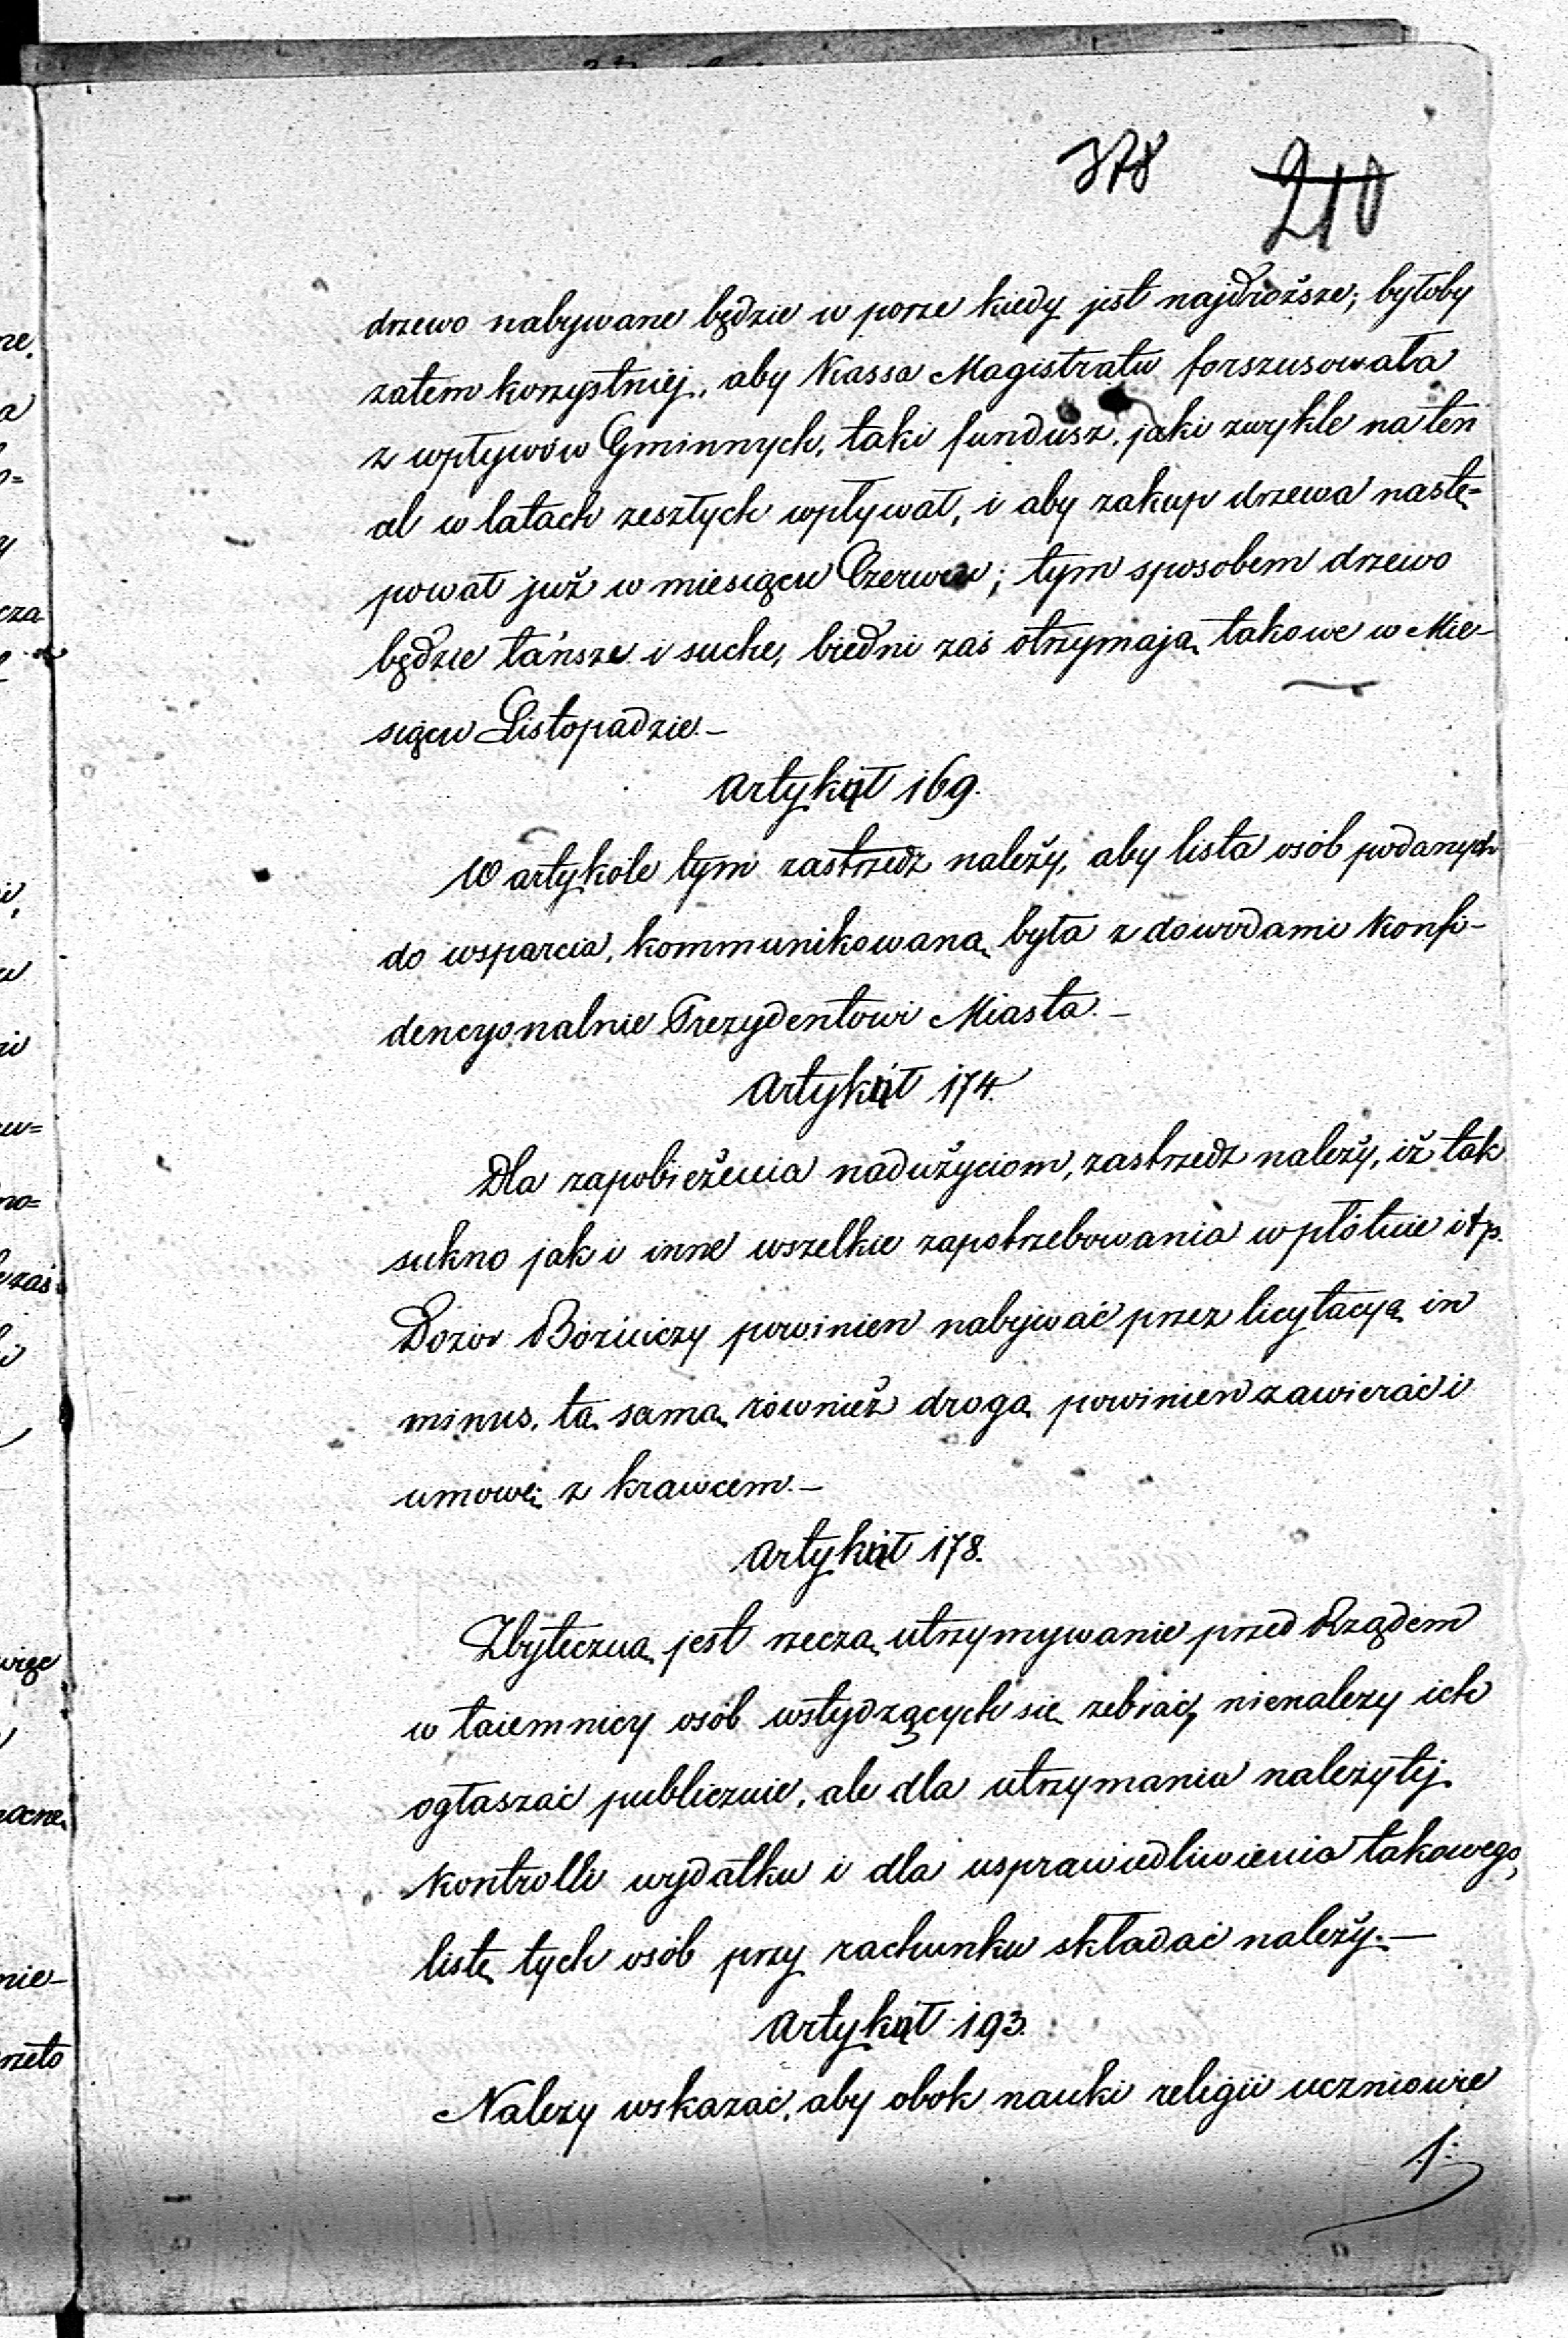 378 210
drzewo nabywane będzie w porze kiedy jest najdroższe; byłoby
zatem korzystniej, aby Kassa Magistratu forszusowała
z wpływów Gminnych, taki fundusz, jaki zwykle na ten
cel w latach zeszłych wpływał, i aby zakup drzewa nastę-
pował już w miesiącu Czerwcu; tym sposobem drzewo
będzie tańsze i suche, biedni zaś otrzymają takowe w Mie-
siącu Listopadzie.–
Artykuł 169.
W artykole tym zastrzedz należy, aby lista osób podanych
do wsparcia, kommunikowaną była z dowodami konfi-
dencyonalnie Prezydentowi Miasta.–
Artykuł 174.
Dla zapobieżenia nadużyciom, zastrzedz należy, iż tak
sukno jak i inne wszelkie zapotrzebowania w płótnie itp.
Dozór Bóżniczy powinien nabywać przez licytacyą in
minus, tą samą również drogą powinien zawierać i
umowę z krawcem.–
Artykuł 178.
Zbyteczną jest rzeczą utrzymywanie przed Rządem
w taiemnicy osób wstydzących się żebrać, nienależy ich
ogłaszać publicznie, ale dla utrzymania należytej
kontrolli wydatku i dla usprawiedliwienia takowego,
listę tych osób przy rachunku składać należy.–
Artykuł 193.
Należy wskazać, aby obok nauki religii uczniowie